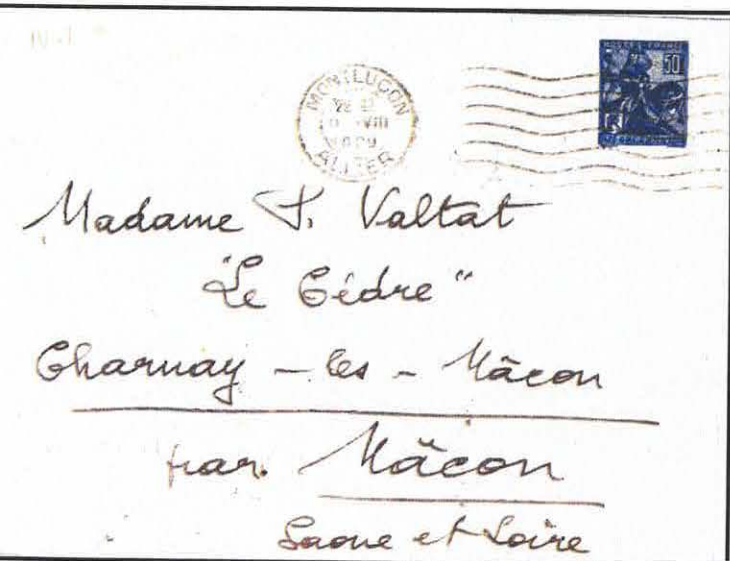 MONTLUCON
VIII
ALLIER
50
Madame F. Valtat
"Le Cèdre"
Charnay - les - Mâcon
par. Mâcon
Saone et Loire